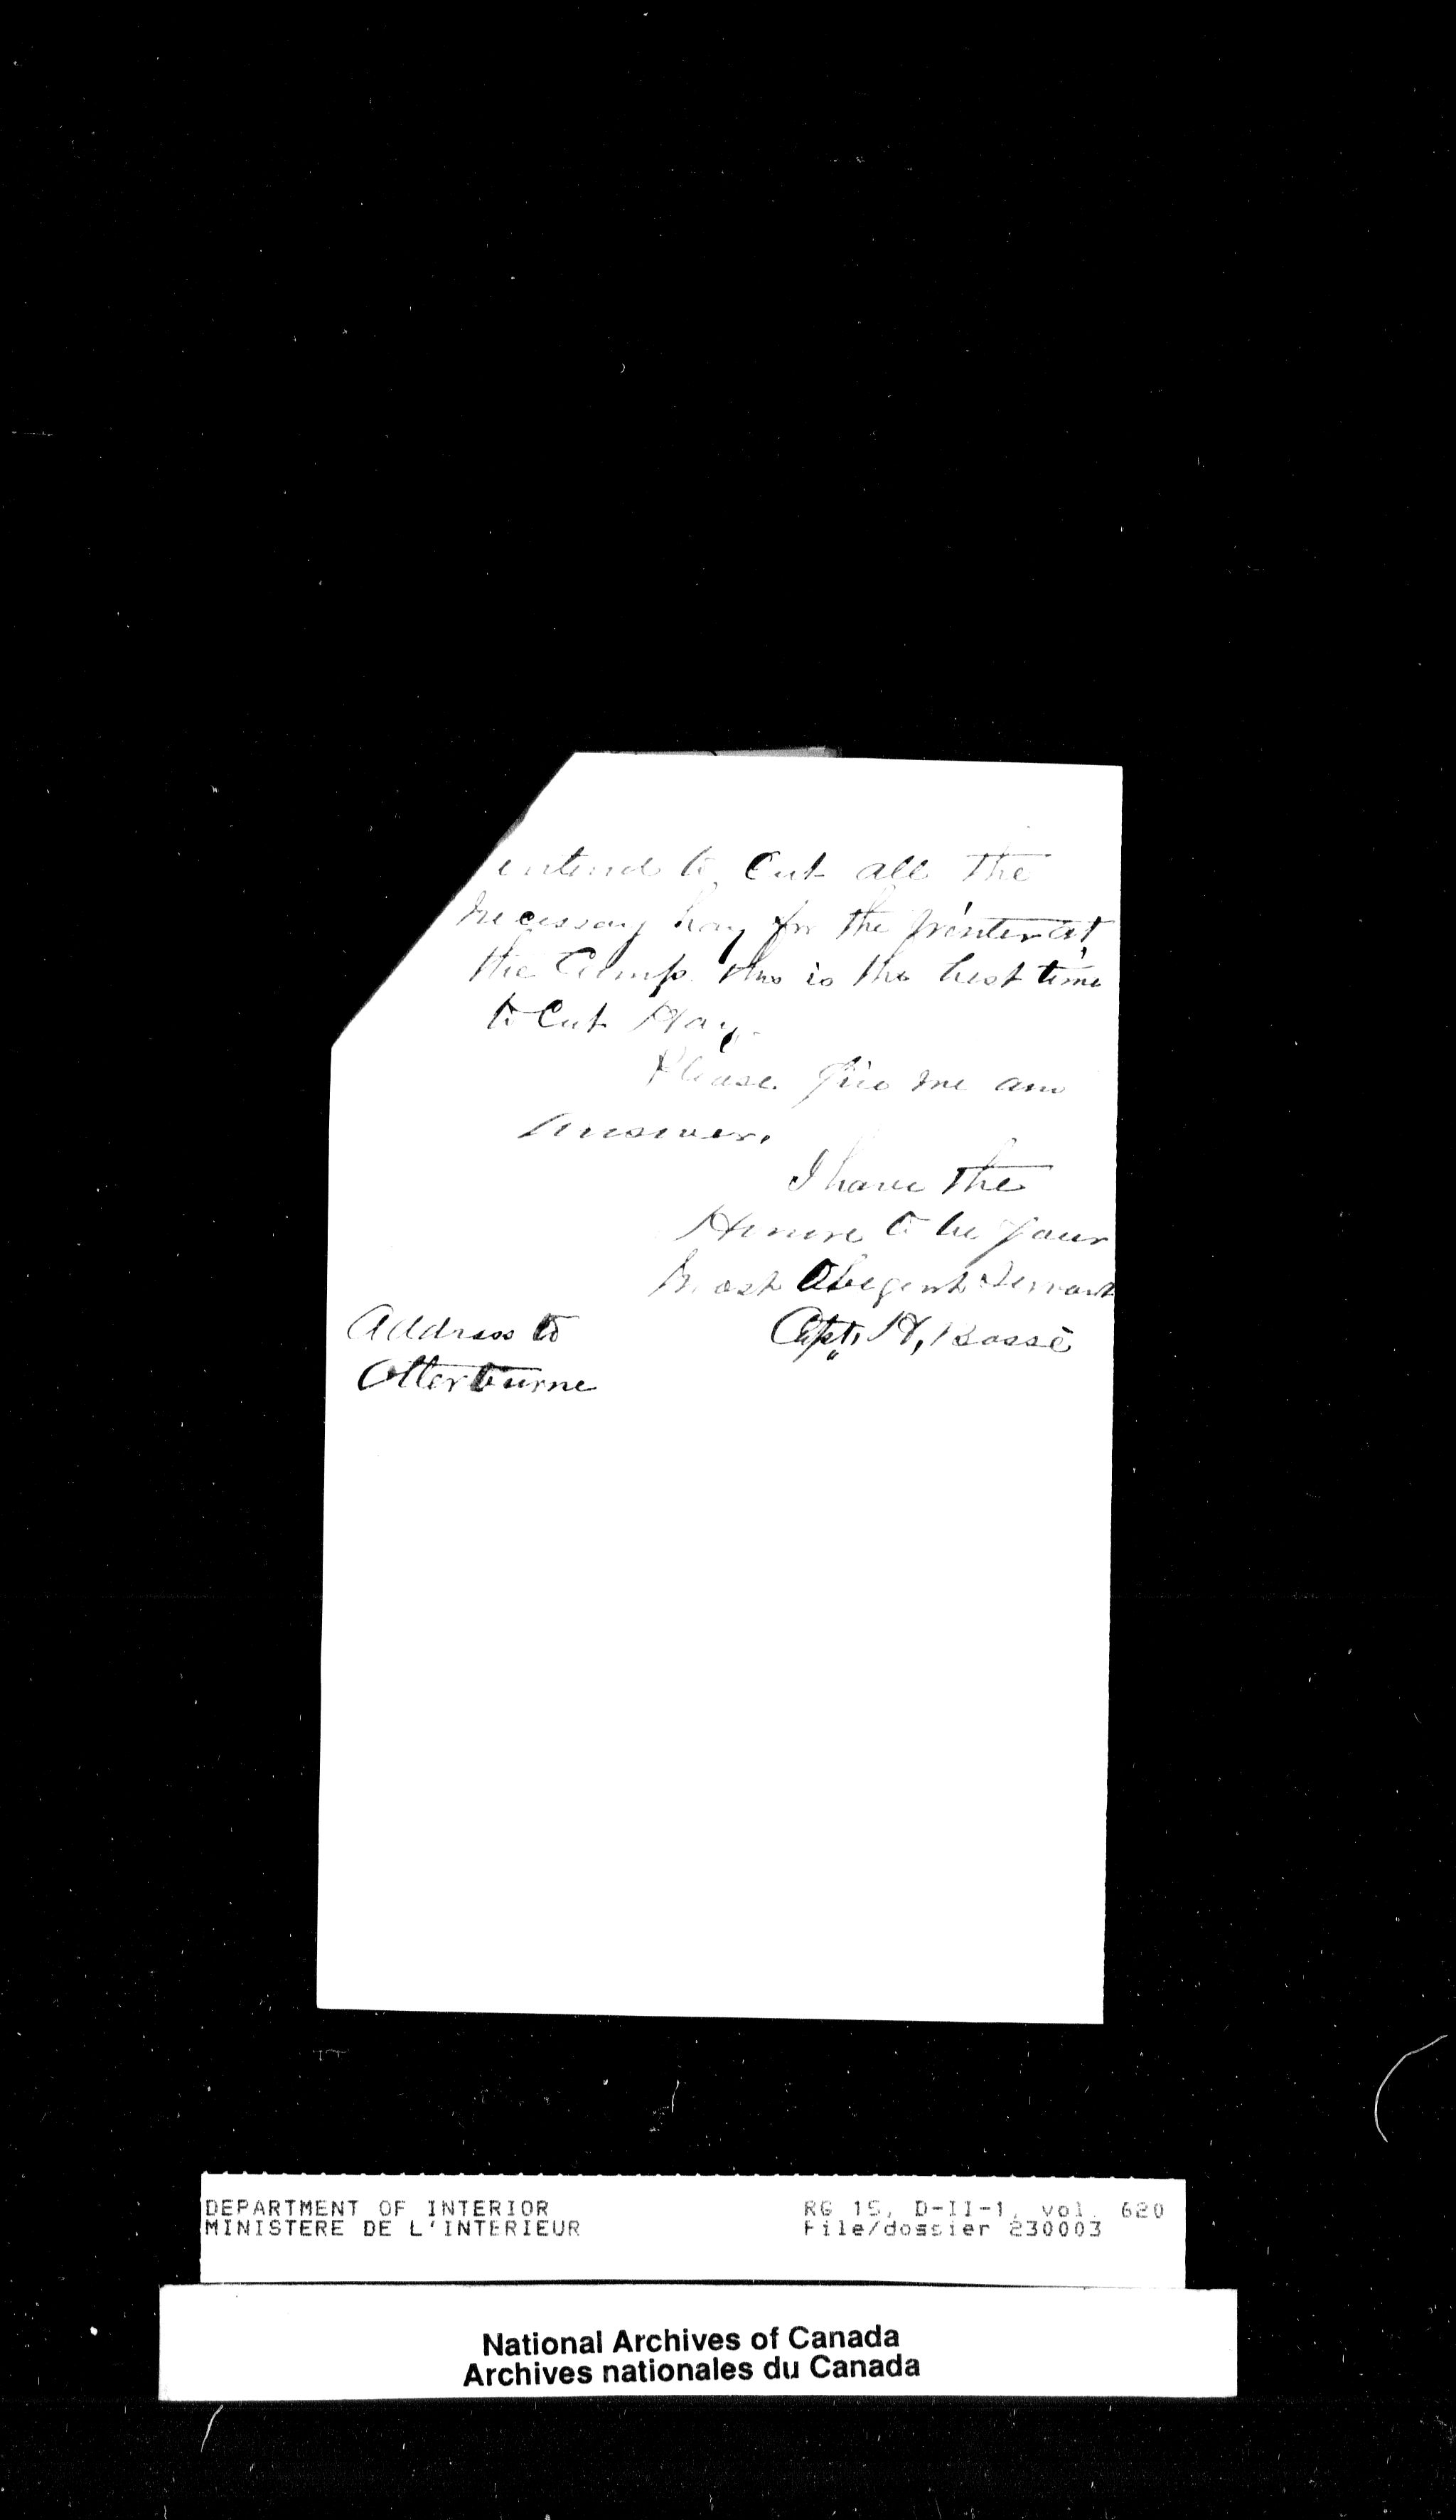 entend to Cut all the
necessary hay for the winter at
the Camp. this is the best time
to Cut Hay.
Please give me an
answer.
I have the
Honore to be your
Most Obegent Servant
Address to
Capt. H, Bossé
Otterburne
DEPARTMENT OF INTERIOR
MINISTERE DE L'INTERIEUR
RG 15, D-II-1, vol. 620
File/dossier 230003
National Archives of Canada
Archives nationales du Canada